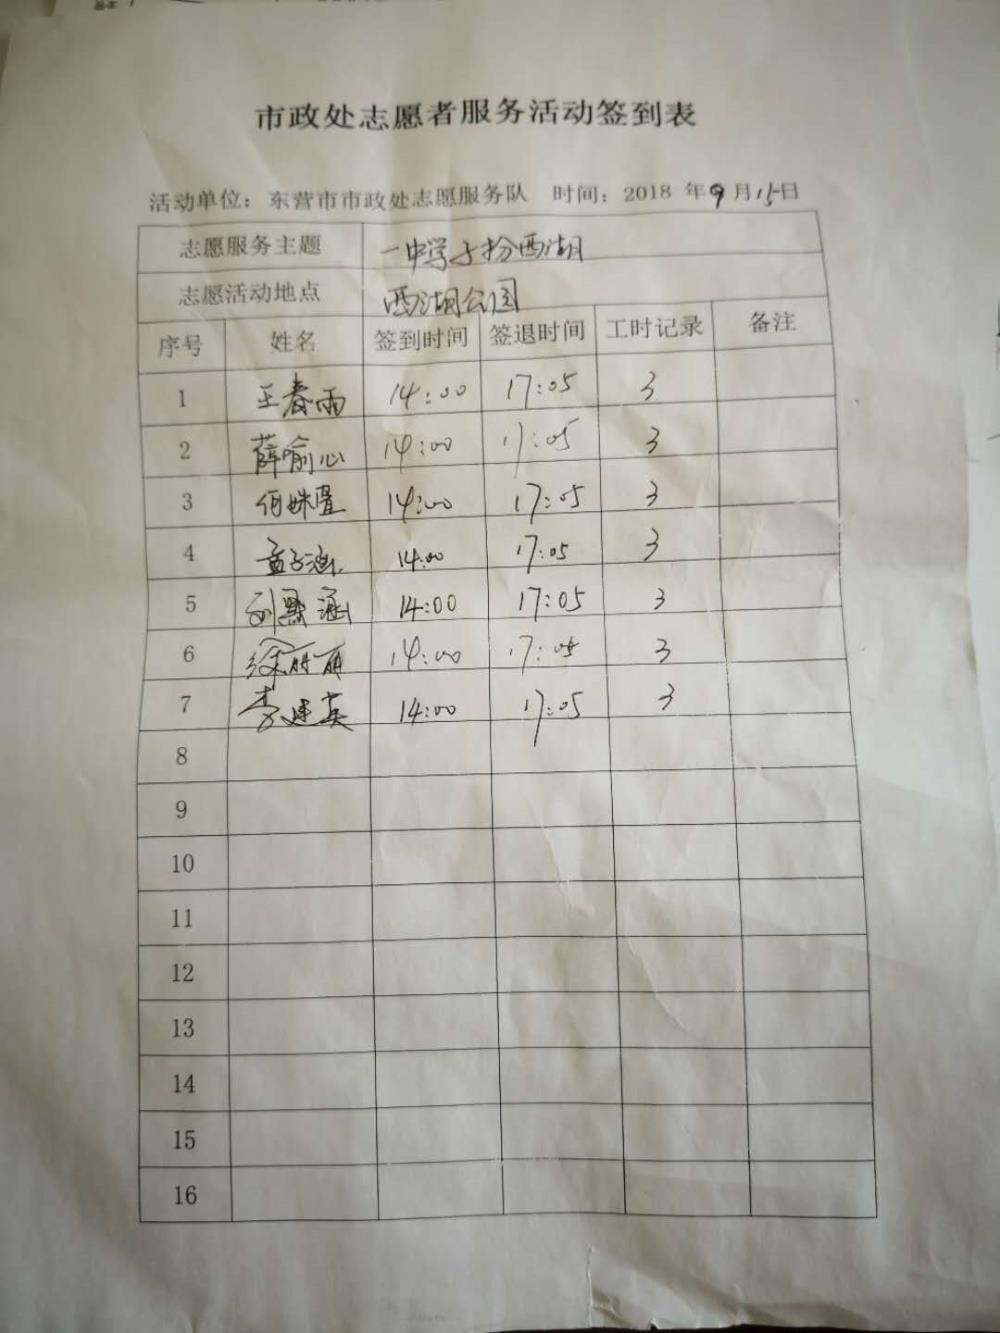 市政处志愿者服务活动签到表
活动单位：东营市市政处志愿服务队 时间：2018 年9月15日
志愿服务主题 一中学子扮西湖
志愿活动地点 西湖公园
序号 姓名 签到时间 签退时间 工时记录 备注
1 王春雨 14:00 17:05 3
2 薛喻心 14:00 17:05 3
3 何姝 14:00 17:05 3
4 孟子涵 14:00 17:05 3
5 刘 涵 14:00 17:05 3
6 徐丽丽 14:00 17:05 3
7 李建英 14:00 17:05 3
8
9
10
11
12
13
14
15
16